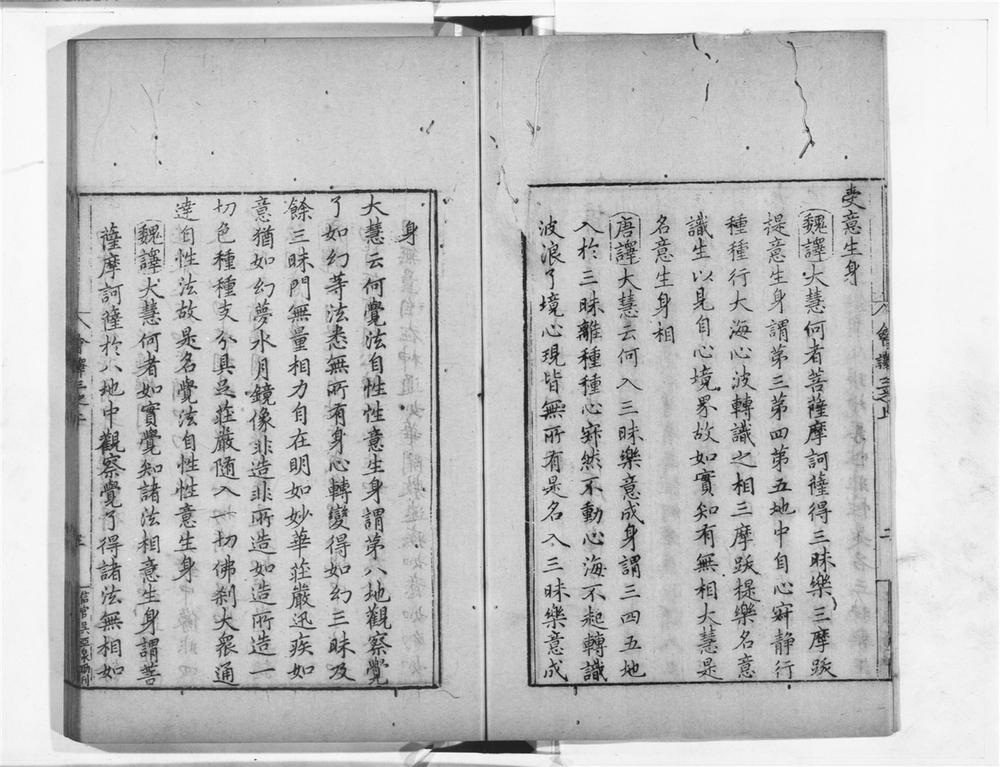 受意生身
魏譯大慧何者菩薩摩訶薩得三昧樂三摩跋
提意生身謂第三第四第五地中自心寂静行
種種行大海心波轉識之相三摩跋提樂名意
識生以見自心境界故如實知有無相大慧是
名意生身相
唐譯大慧云何入三昧樂意成身謂三四五地
入於三昧離種種心寂然不動心海不起轉識
波浪了境心現皆無所有是名入三昧樂意成
身
大慧云何覺法自性性意生身謂第八地觀察覺
了如幻等法悉無所有身心轉變得如幻三昧及
餘三昧門無量相力自在明如妙華莊嚴迅疾如
意猶如幻夢水月鏡像非造非所造如造所造一
切色種種支分具足莊嚴隨入一切佛剎大衆通
達自性法故是名覺法自性性意生身
魏譯大慧何者如實覺知諸法相意生身謂菩
薩摩訶薩於八地中觀察覺了得諸法無相如